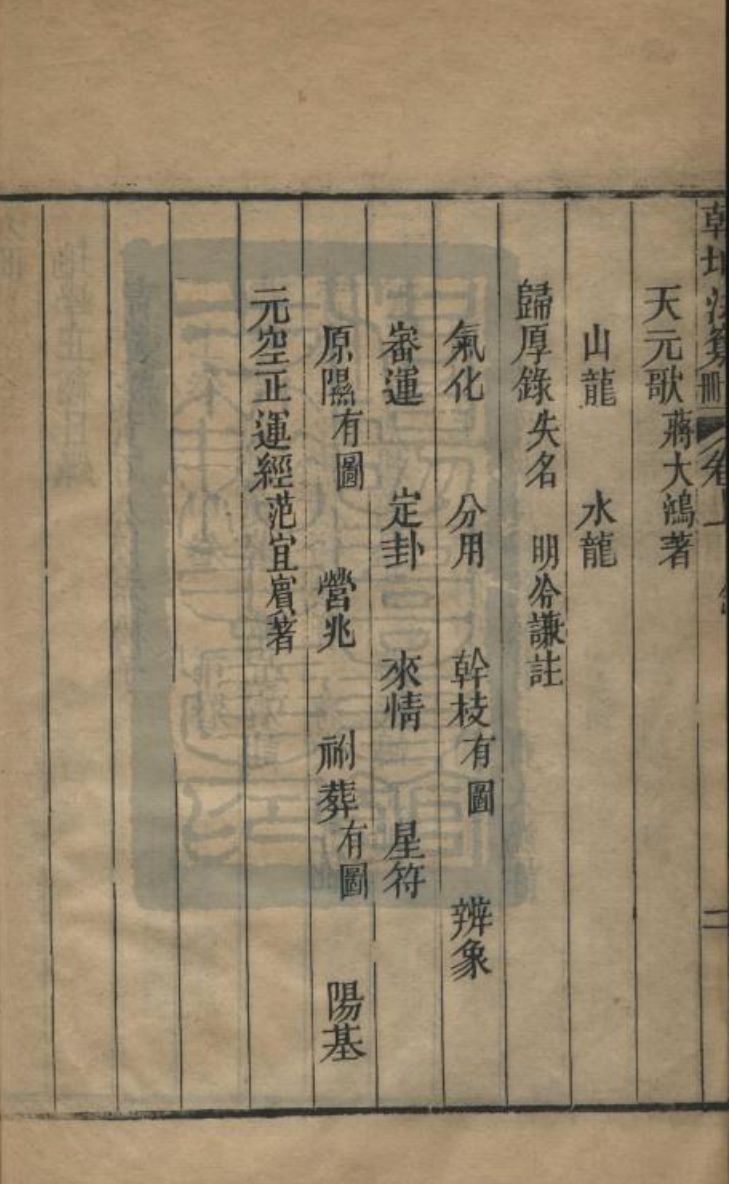 乾坤法竅 冊一 卷上 二
天元歌 蔣大鴻著
山龍 水龍
歸厚錄 失名 明冷謙註
氣化 分用 幹枝 有圖 辨象
審運 定卦 來情 星符
原隰 有圖 營兆 祔葬 有圖 陽基
元空正運經 范宜賓著